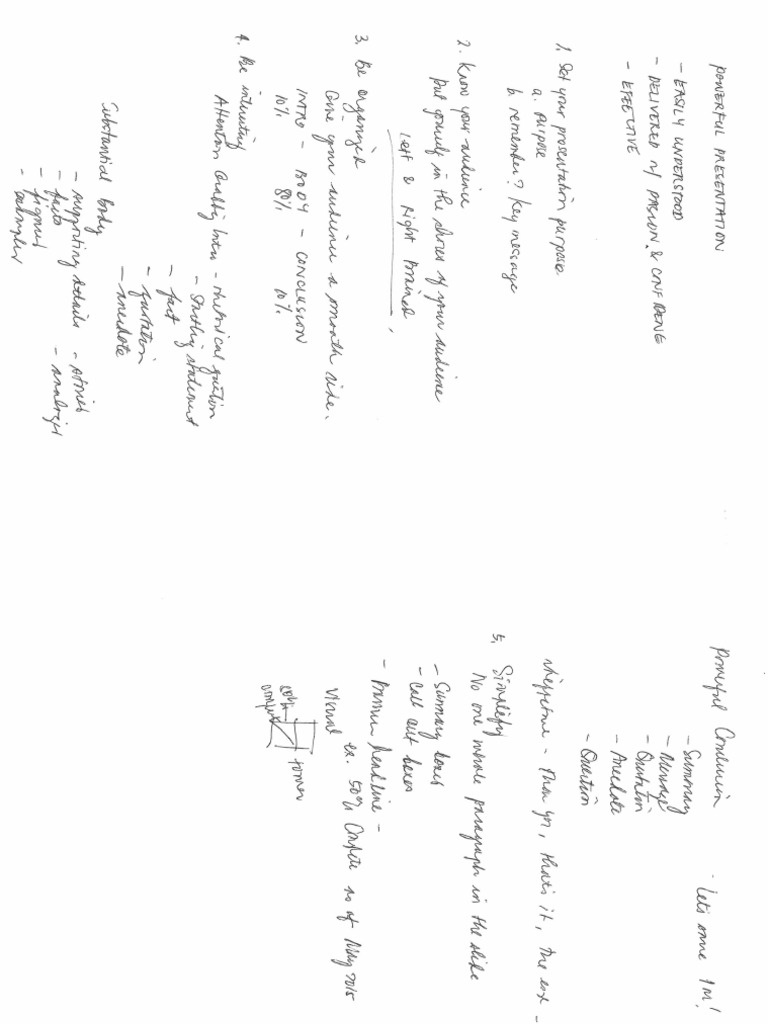 POWERFUL PRESENTATION
- EASILY UNDERSTOOD
- DELIVERED w/ PASSION & CONFIDENCE
- EFFECTIVE
1. Set your presentation purpose
a. purpose
b. remember? Key message
2. Know your audience
Put yourself in the shoes of your audience
Left & Right Brained
3. Be organized
Give your audience a smooth ride.
INTRO - BODY - CONCLUSION
10% 80% 10%
4. Be interesting
Attention Grabbing Intro - rhetorical question
- Startling statement
- fact
- quotation
- anecdote
Substantial body
- supporting details - stories
- facts - analogies
- figures
- examples
Powerful Conclusion - Let's some 1M!
- Summary
- Message
- Quotation
- Anecdote
- Question
- Thank you, that's it, the end -
5. Simplify
No one whole paragraph in the slide
- Summary boxes
- Call out boxes
- Banner headline -
Visual ex. 50% Complete as of May 2015
50%
complete